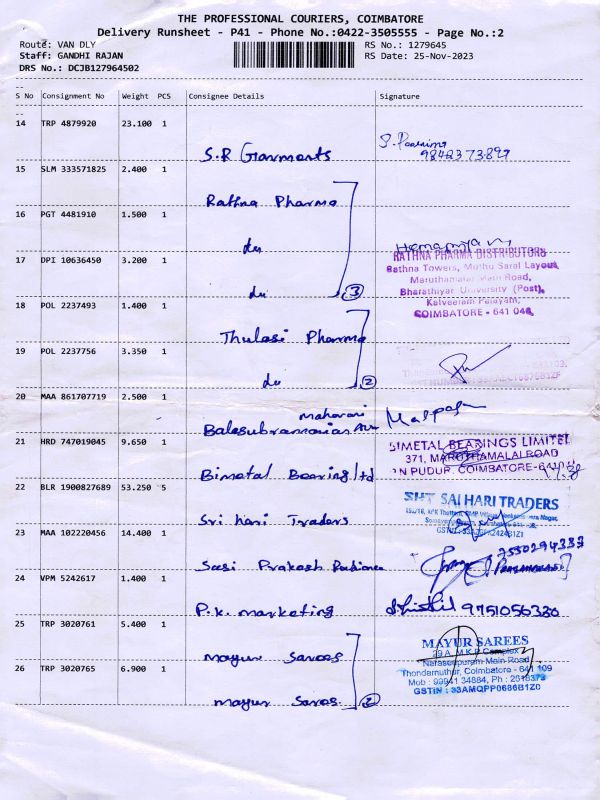 THE PROFESSIONAL COURIERS, COIMBATORE
Delivery Runsheet - P41 - Phone No.:0422-3505555 - Page No.:2
Route: VAN DLY RS No.: 1279645
Staff: GANDHI RAJAN RS Date: 25-Nov-2023
DRS No.: DCJB127964502
S No Consignment No Weight PCS Consignee Details Signature
14 TRP 4879920 23.100 1
S.R Garments 9842373897
15 SLM 333571825 2.400 1
Rathna Pharma
16 PGT 4481910 1.500 1
do
RATHNA PHARMA DISTRIBUTORS
17 DPI 10636450 3.200 1
Rathna Towers, Muthu Saral Layout,
Maruthamalai Main Road,
Bharathiyar University (Post),
do 3
Kalveeram Palayam,
18 POL 2237493 1.400 1
COIMBATORE - 641 046.
Thulasi Pharma
19 POL 2237756 3.350 1
do 2
20 MAA 861707719 2.500 1
Balasubramanian
21 HRD 747019045 9.650 1
BIMETAL BEARINGS LIMITED
371, MARUTHAMALAI ROAD
PUDUR, COIMBATORE-
Bimetal Bearing ltd
22 BLR 1900827689 53.250 5
SRI SAI HARI TRADERS
Sri hari Traders
23 MAA 102220456 14.400 1
7550294333
Sasi Prakash
24 VPM 5242617 1.400 1
P.K. marketing 9751056380
25 TRP 3020761 5.400 1
MAYUR SAREES
29 A, M.K.P Complex
mayur Sarees
Naraseepuram Main Road
26 TRP 3020765 6.900 1
Thondamuthur, Coimbatore - 641 109
Mob : 99941 34884, Ph : 2618373
GSTIN : 33AMQPP0686B1Z0
mayur Sares 2